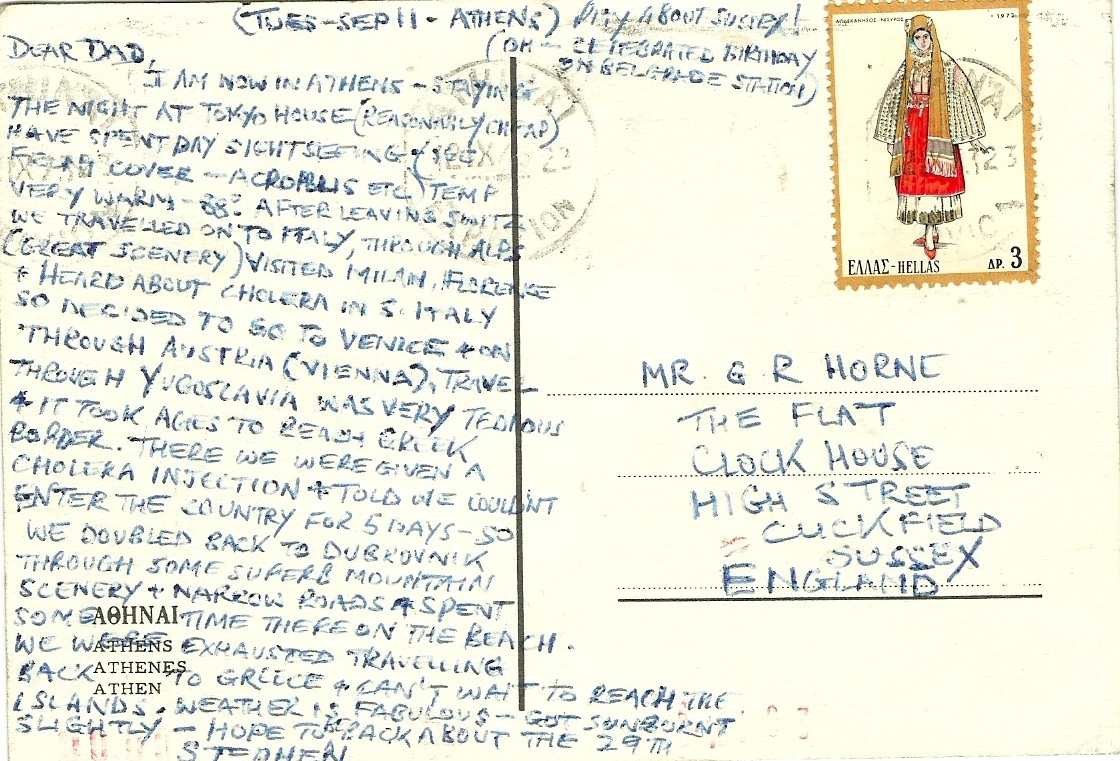 (TUES-SEP 11 - ATHENS)
PITY ABOUT SUSSEX!
(OH - CELEBRATED BIRTHDAY
ON BELGRADE STATION)
DEAR DAD,
I AM NOW IN ATHENS - STAYING
THE NIGHT AT TOKYO HOUSE (REASONABLY CHEAP)
HAVE SPENT DAY SIGHTSEEING (SEE
COVER - ACROPOLIS ETC) TEMP
VERY WARM - 88° AFTER LEAVING SWITZ
WE TRAVELLED ON TO ITALY, THROUGH ALPS
(GREAT SCENERY) VISITED MILAN, FLORENCE
+ HEARD ABOUT CHOLERA IN S. ITALY
SO DECIDED TO GO TO VENICE + ON
THROUGH AUSTRIA (VIENNA), TRAVEL
THROUGH YUGOSLAVIA WAS VERY TEDIOUS
+ IT TOOK AGES TO REACH GREEK
BORDER. THERE WE WERE GIVEN A
CHOLERA INJECTION + TOLD WE COULDN'T
ENTER THE COUNTRY FOR 5 DAYS - SO
WE DOUBLED BACK TO DUBROVNIK
THROUGH SOME SUPERB MOUNTAIN
SCENERY + NARROW ROADS + SPENT
SOME TIME THERE ON THE BEACH.
WE WERE EXHAUSTED TRAVELLING
BACK TO GREECE + CAN'T WAIT TO REACH THE
ISLANDS. WEATHER IS FABULOUS - GOT SUNBURNT
SLIGHTLY - HOPE TO BACK ABOUT THE 29TH
STEPHEN
ΑΘΗΝΑΙ
ATHENS
ATHENES
ATHEN
ΔΩΔΕΚΑΝΗΣΟΣ-ΝΙΣΥΡΟΣ
1972
ΕΛΛΑΣ-HELLAS ΔΡ. 3
MR. G R HORNE
THE FLAT
CLOCK HOUSE
HIGH STREET
CUCKFIELD
SUSSEX
ENGLAND